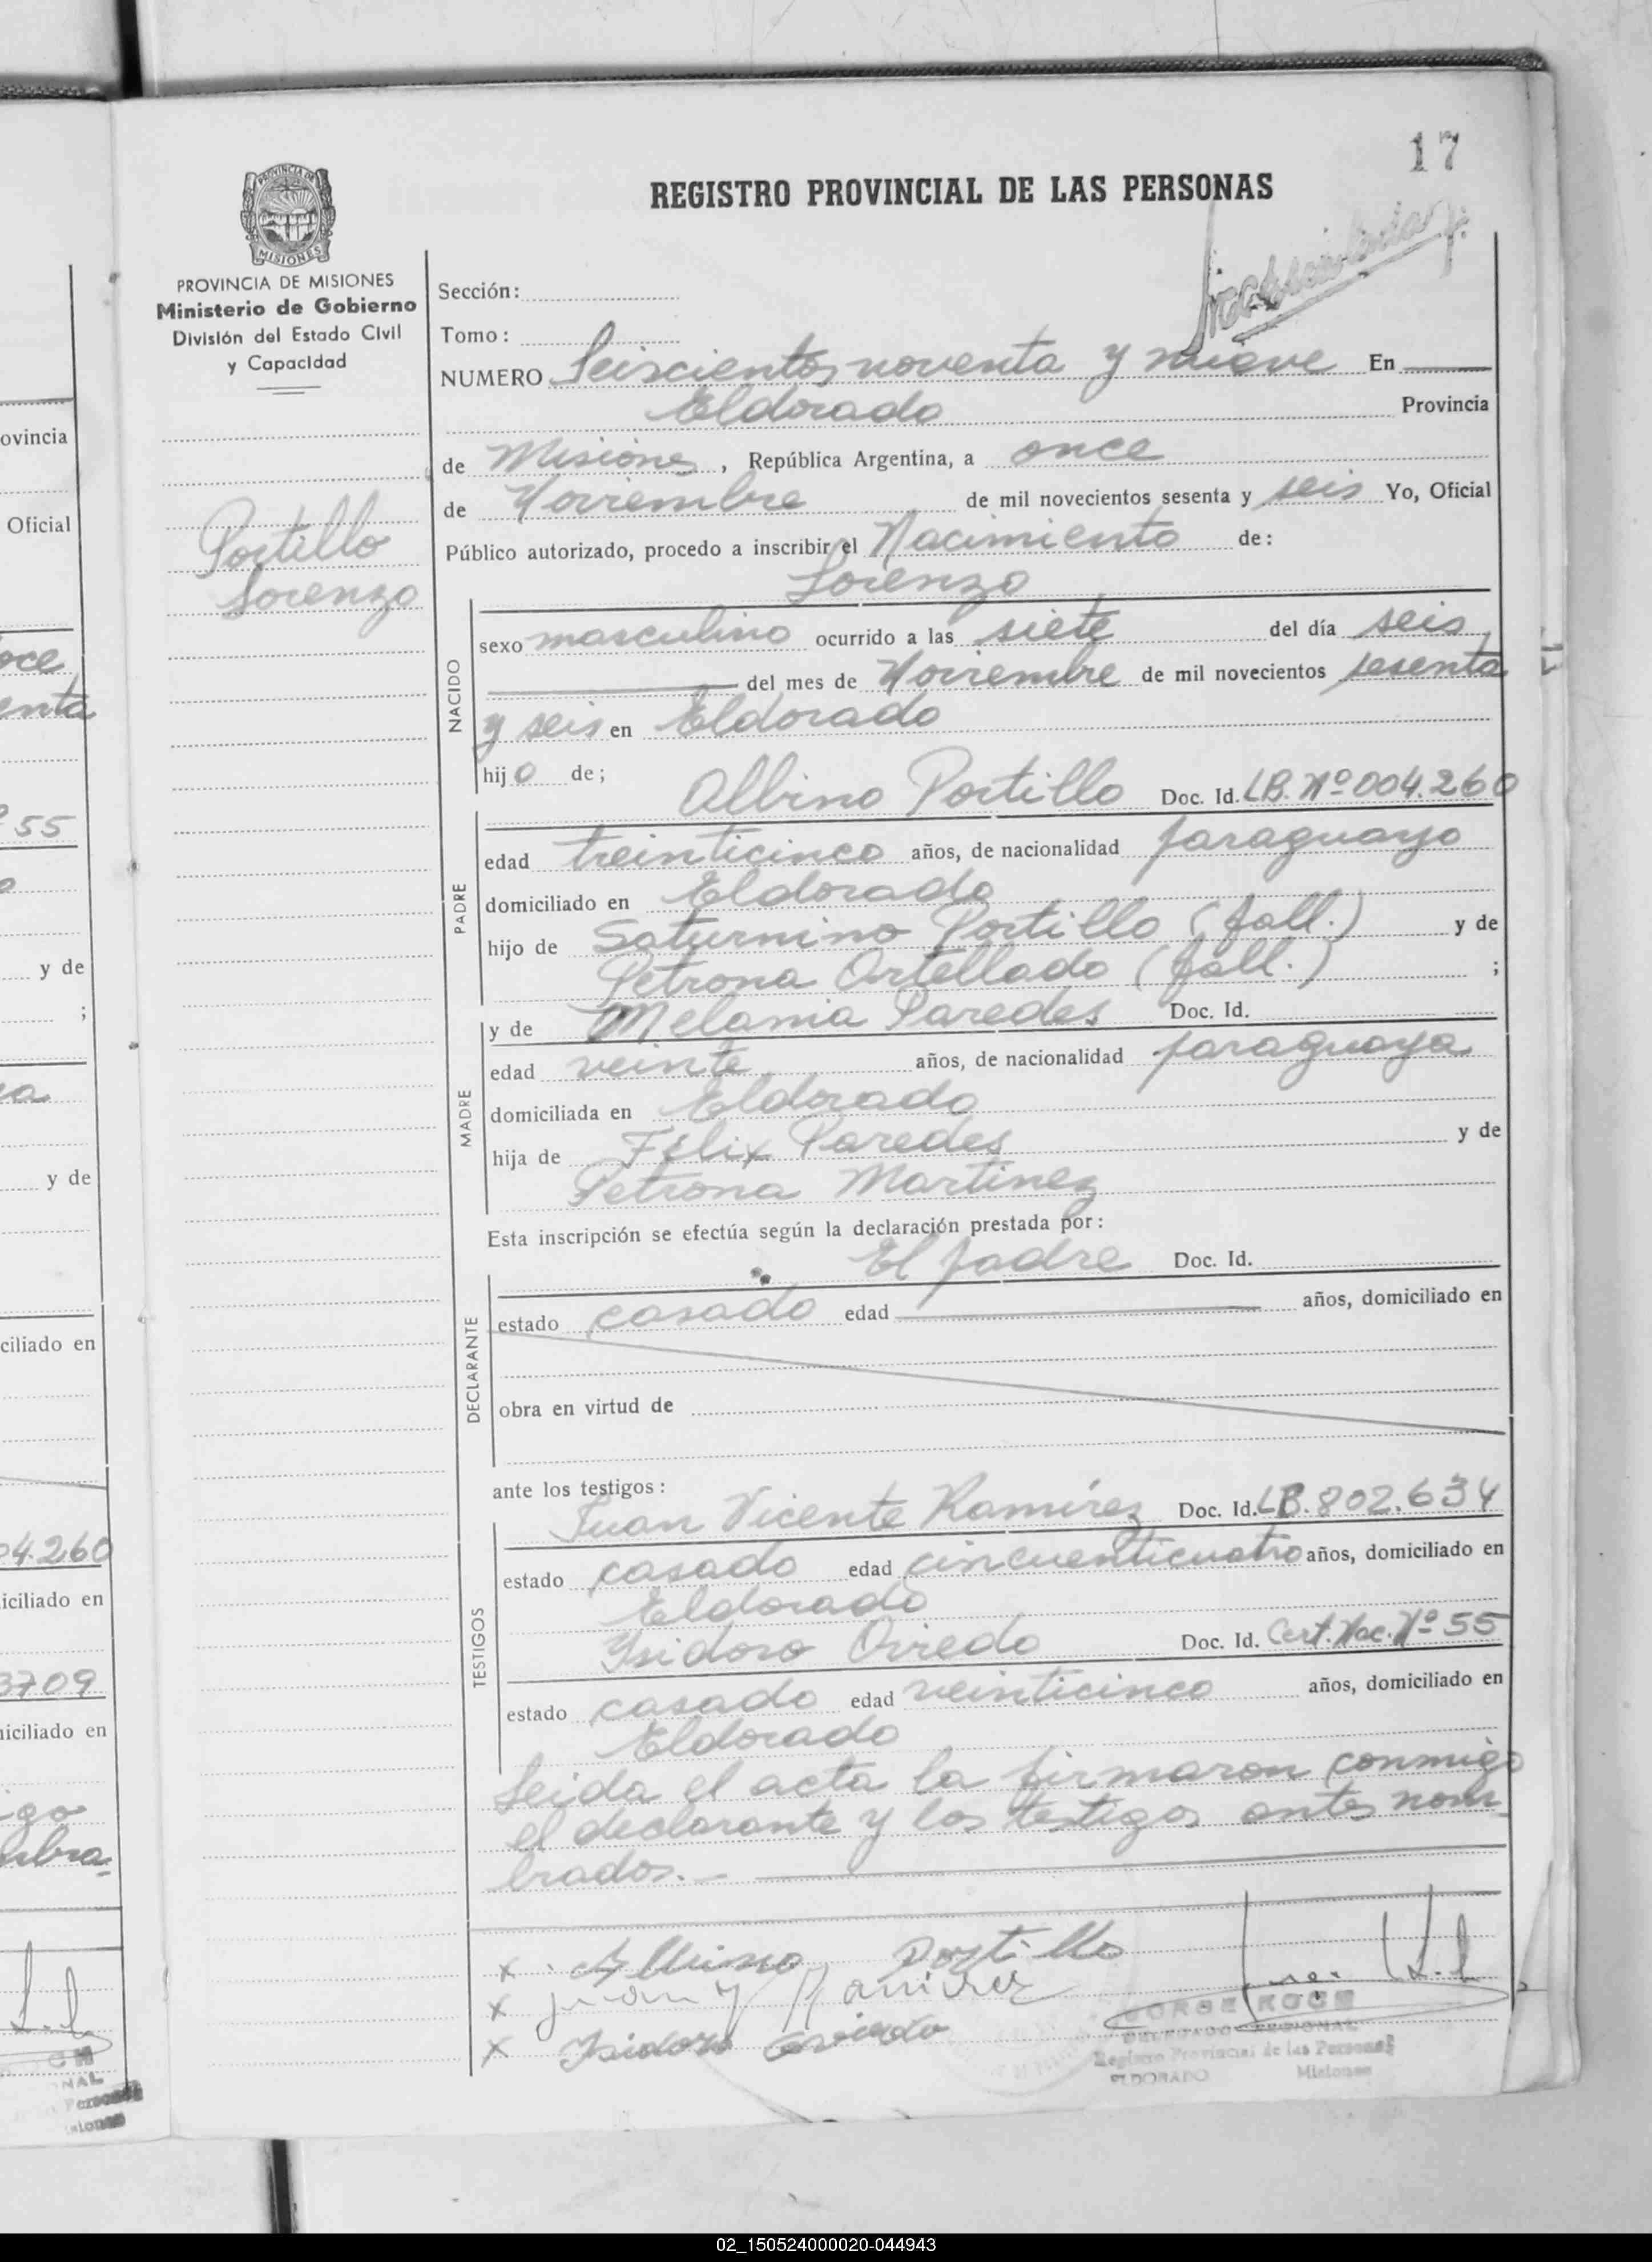 17
REGISTRO PROVINCIAL DE LAS PERSONAS
PROVINCIA DE MISIONES
Ministerio de Gobierno
División del Estado Civil
y Capacidad
Portillo
Lorenzo
Sección:
Tomo:
NUMERO Seiscientos noventa y nueve En
Eldorado Provincia
de Misiones, República Argentina, a once
de Noviembre de mil novecientos sesenta y seis Yo, Oficial
Público autorizado, procedo a inscribir el Nacimiento de:
Lorenzo
NACIDO
sexo masculino ocurrido a las siete del día seis
del mes de Noviembre de mil novecientos sesenta
y seis en Eldorado
hijo de;
Albino Portillo Doc. Id. LB. Nº 004.260
PADRE
edad treinticinco años, de nacionalidad paraguayo
domiciliado en Eldorado
hijo de Saturnino Portillo (fall.) y de
Petrona Ortellado (fall.) ;
y de Melania Paredes Doc. Id.
MADRE
edad veinte años, de nacionalidad paraguaya
domiciliada en Eldorado
hija de Félix Paredes y de
Petrona Martinez
Esta inscripción se efectúa según la declaración prestada por:
El padre Doc. Id.
DECLARANTE
estado casado edad años, domiciliado en
obra en virtud de
ante los testigos:
Juan Vicente Ramírez Doc. Id. LB. 802.634
TESTIGOS
estado casado edad cincuenticuatro años, domiciliado en
Eldorado
Isidoro Oviedo Doc. Id. Cert. Nac. Nº 55
estado casado edad veinticinco años, domiciliado en
Eldorado
Leida el acta la firmaron conmigo
el declarante y los testigos antes nom
brados.-
x Albino Portillo
x Juan V Ramirez
x Isidoro Oviedo
JORGE KOCH
DELEGADO REGIONAL
Registro Provincial de las Personas
ELDORADO Misiones
ovincia
Oficial
oce
enta
55
y de
;
y de
ciliado en
04.260
iciliado en
3709
niciliado en
02_150524000020-044943